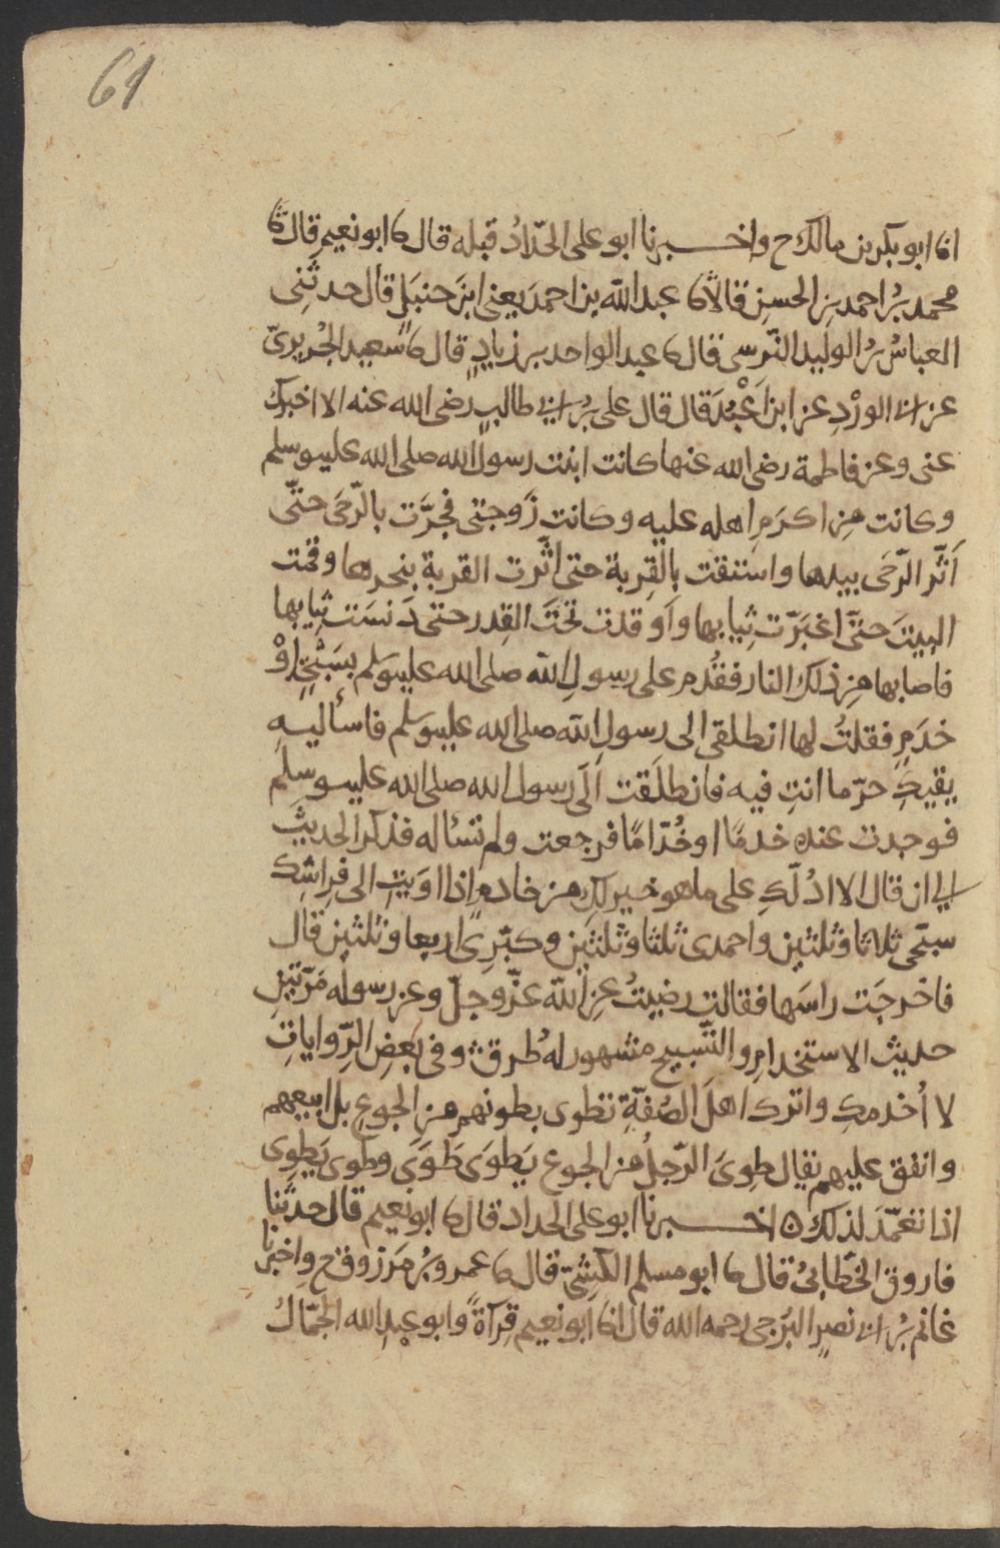 61
انا ابو بكر بن مالك ح واخبرنا ابو على الحدّادُ قبله قال نا ابو نعيم قال ثنا
محمد بنُ احمد بنِ الحسنِ قالا ثنا عبد الله بن احمدَ يعنى ابنَ حنبلٍ قال حدثنى
العباسُ بنُ الوليد النّرسى قال نا عبد الواحد بن زيادٍ قال نا سعيد الجُريرىّ
عن ابى الورْدِ عن ابن اَعْبُدَ قال قال على بنُ ابى طالبٍ رضى الله عنه الا اخبرك
عنى وعن فاطمة رضى الله عنها كانت ابنت رسول الله صلى الله عليه وسلم
وكانت مِن اكرَمِ اهله عليه وكانت زَوجتى فجرَّت بالرّحَى حتّى
اَثّر الرّحَى بيدها واستقت بالقِربة حتى اثّرت القربة بنحرها وقمّت
البيتَ حتّى اغبَرّت ثِيابها واَوقدت تحتَ القِدر حتى دَنسَت ثِيابها
فاصابها مِن ذلك النار فقُدم على رسولِ الله صلى الله عليه وسلم بسَبْىٍ اوْ
خدَمٍ فقلتُ لها انطلقى الى رسولِ الله صلى الله عليه وسلم فاسأليهِ
يقيكِ حرّ ما انتِ فيه فانطلَقت اِلَى رسول الله صلى الله عليه وسلم
فوجدت عنده خدمًا او خُدّامًا فرجعت ولم تسئاله فذكر الحديث
الى ان قال الا ادُلّكِ على ما هو خير لكِ من خادمٍ اذا اوَيتِ الى فِراشكِ
سبّحى ثلاثا وثلثين واحمدى ثلثا وثلثين وكبّرِى اربعا وثلثين قال
فاخرجَت راسَها فقالت رضيتُ عنِ الله عزّ وجلّ وعن رسوله مَرّتينِ
حديث الاستخدامِ والتّسبيح مشهور لهُ طرق وفى بعضِ الرِّواياتِ
لا اُخدمكِ واترك اهلَ الصُفّةِ تطوى بطونهم من الجوع بل ابيعهم
وانفق عليهم يقال طِوىَ الرّجلُ من الجوع يَطوَى طَوَى وطوى يَطوِى
اذا تعمّدَ لذلك ه اخبرنا ابو على الحداد قال نا ابو نعيم قال حدثنا
فاروق الخطّابىُ قال نا ابو مسلم الكشِىّ قال نا عمرو بنُ مَرزوق ح واخبرنا
غانم بنُ ابى نصرٍ البُرجى رحمه الله قال انا ابو نعيم قِرآةً وابو عبدِ الله الجمّالُ